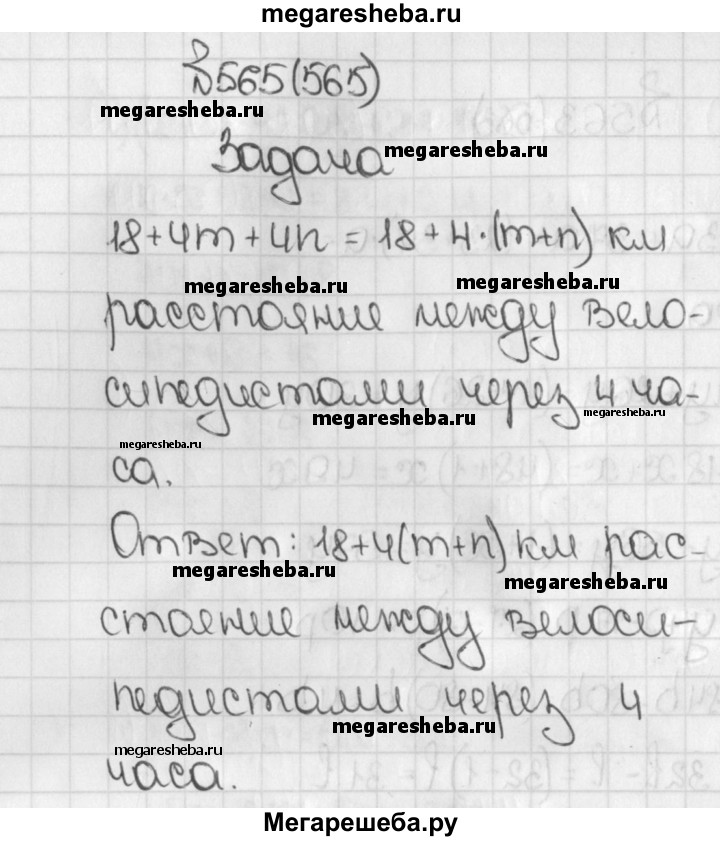 megaresheba.ru
№565(565)
megaresheba.ru
Задача megaresheba.ru
18+4m+4n = 18+4·(m+n) км
megaresheba.ru megaresheba.ru
расстояние между вело-
сипедистами через 4 ча-
megaresheba.ru megaresheba.ru
megaresheba.ru
са.
Ответ: 18+4(m+n) км рас-
megaresheba.ru megaresheba.ru
стояние между велоси-
педистами через 4
megaresheba.ru
megaresheba.ru
часа.
Мегарешеба.ру